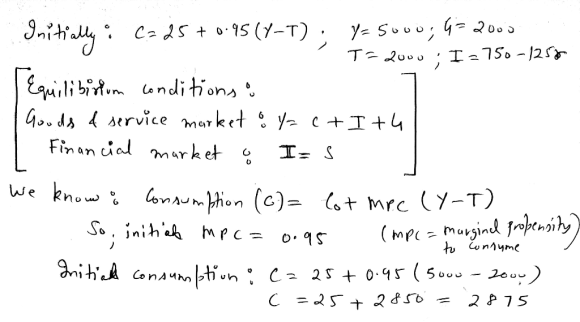 Initially : C = 25 + 0.95 (Y-T) ; Y = 5000 ; G = 2000
T = 2000 ; I = 750 - 125r
Equilibrium conditions :
Goods & service market : Y = C + I + G
Financial market : I = S
We know : Consumption (C) = C₀ + MPC (Y-T)
So, initial MPC = 0.95 (MPC = marginal propensity to consume)
Initial consumption : C = 25 + 0.95 (5000 - 2000)
C = 25 + 2850 = 2875